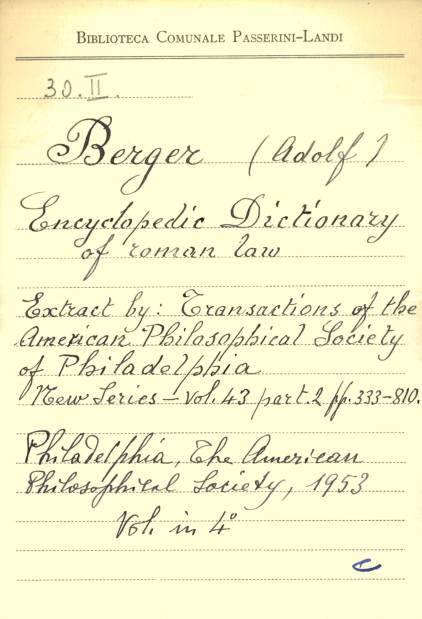 BIBLIOTECA COMUNALE PASSERINI-LANDI
30.II.
Berger (Adolf)
Encyclopedic Dictionary
of roman law
Extract by: Transactions of the
American Philosophical Society
of Philadelphia
New Series - Vol. 43 part. 2 pp. 333-810.
Philadelphia, The American
Philosophical Society, 1953
Vol. in 4°
C